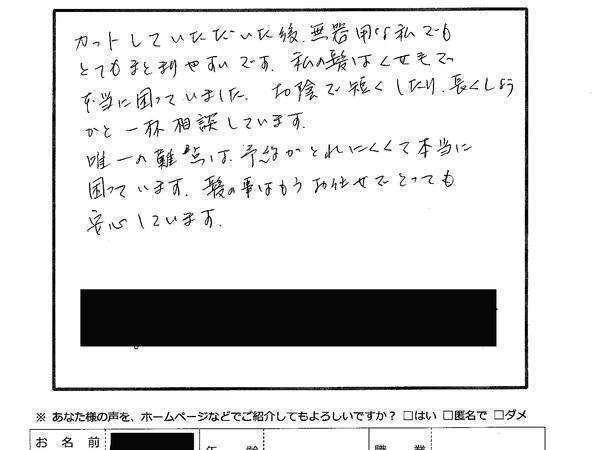 カットしていただいた後、無器用な私でも
とてもまとまりやすいです。私の髪はくせ毛で
本当に困っていました。お陰で短くしたり、長くしよう
かと一杯相談しています。
唯一の難点は、予約がとれにくくて本当に
困っています。髪の事はもうお任せでとっても
安心しています。
※ あなた様の声を、ホームページなどでご紹介してもよろしいですか？ □はい □匿名で □ダメ
お名前 年齢 職業